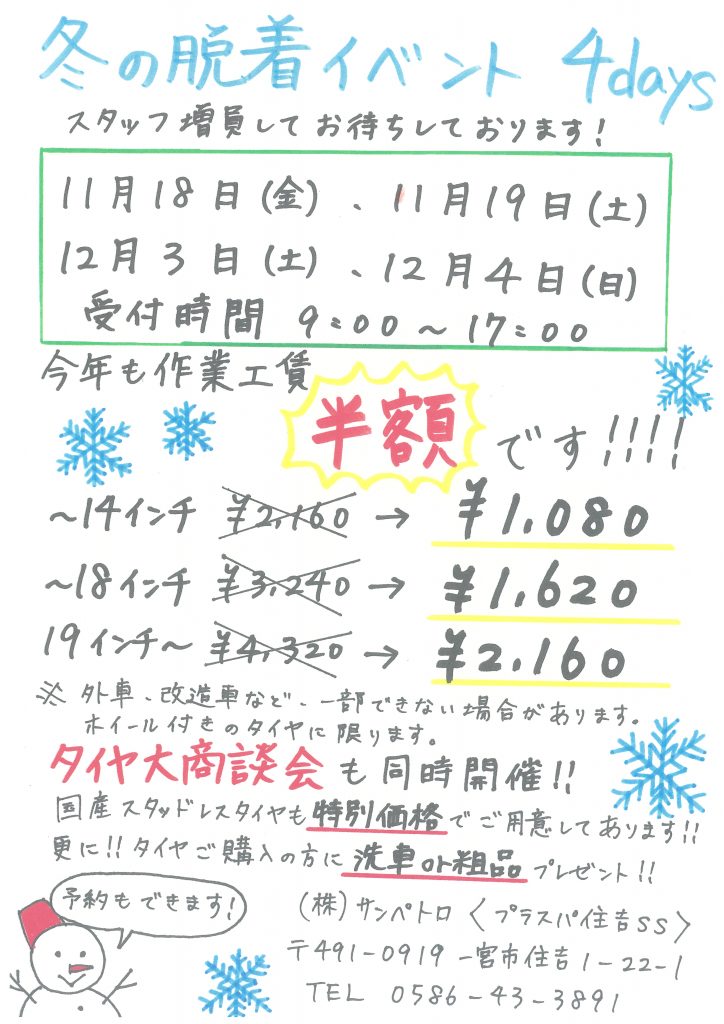 冬の脱着イベント 4days
スタッフ増員してお待ちしております!
11月18日(金)、11月19日(土)
12月3日(土)、12月4日(日)
受付時間 9:00~17:00
今年も作業工賃
半額です!!!!
~14インチ ¥2,160 → ¥1,080
~18インチ ¥3,240 → ¥1,620
19インチ~ ¥4,320 → ¥2,160
※ 外車、改造車など、一部できない場合があります。
ホイール付きのタイヤに限ります。
タイヤ大商談会も同時開催!!
国産スタッドレスタイヤも特別価格でご用意してあります!!
更に!!タイヤご購入の方に洗車or粗品プレゼント!!
予約もできます!
(株)サンペトロ〈プラスパ住吉SS〉
〒491-0919 一宮市住吉1-22-1
TEL 0586-43-3891